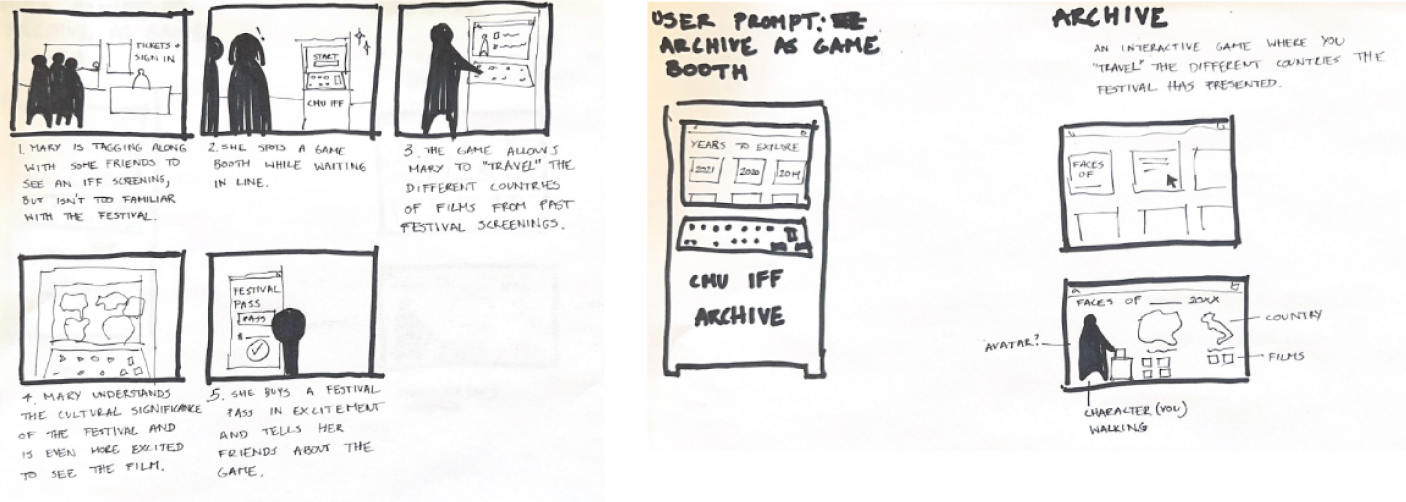 TICKETS +
SIGN IN
1. MARY IS TAGGING ALONG
WITH SOME FRIENDS TO
SEE AN IFF SCREENING,
BUT ISN'T TOO FAMILIAR
WITH THE FESTIVAL.
START
CMU IFF
2. SHE SPOTS A GAME
BOOTH WHILE WAITING
IN LINE.
3. THE GAME ALLOWS
MARY TO "TRAVEL" THE
DIFFERENT COUNTRIES
OF FILMS FROM PAST
FESTIVAL SCREENINGS.
4. MARY UNDERSTANDS
THE CULTURAL SIGNIFICANCE
OF THE FESTIVAL AND
IS EVEN MORE EXCITED
TO SEE THE FILM.
FESTIVAL
PASS
PASS
5. SHE BUYS A FESTIVAL
PASS IN EXCITEMENT
AND TELLS HER
FRIENDS ABOUT THE
GAME.
USER PROMPT:
ARCHIVE AS GAME
BOOTH
YEARS TO EXPLORE
2021 2020 2019
CMU IFF
ARCHIVE
ARCHIVE
AN INTERACTIVE GAME WHERE YOU
"TRAVEL" THE DIFFERENT COUNTRIES THE
FESTIVAL HAS PRESENTED.
FACES
OF
FACES OF ____ 20XX
COUNTRY
AVATAR?
FILMS
CHARACTER (YOU)
WALKING